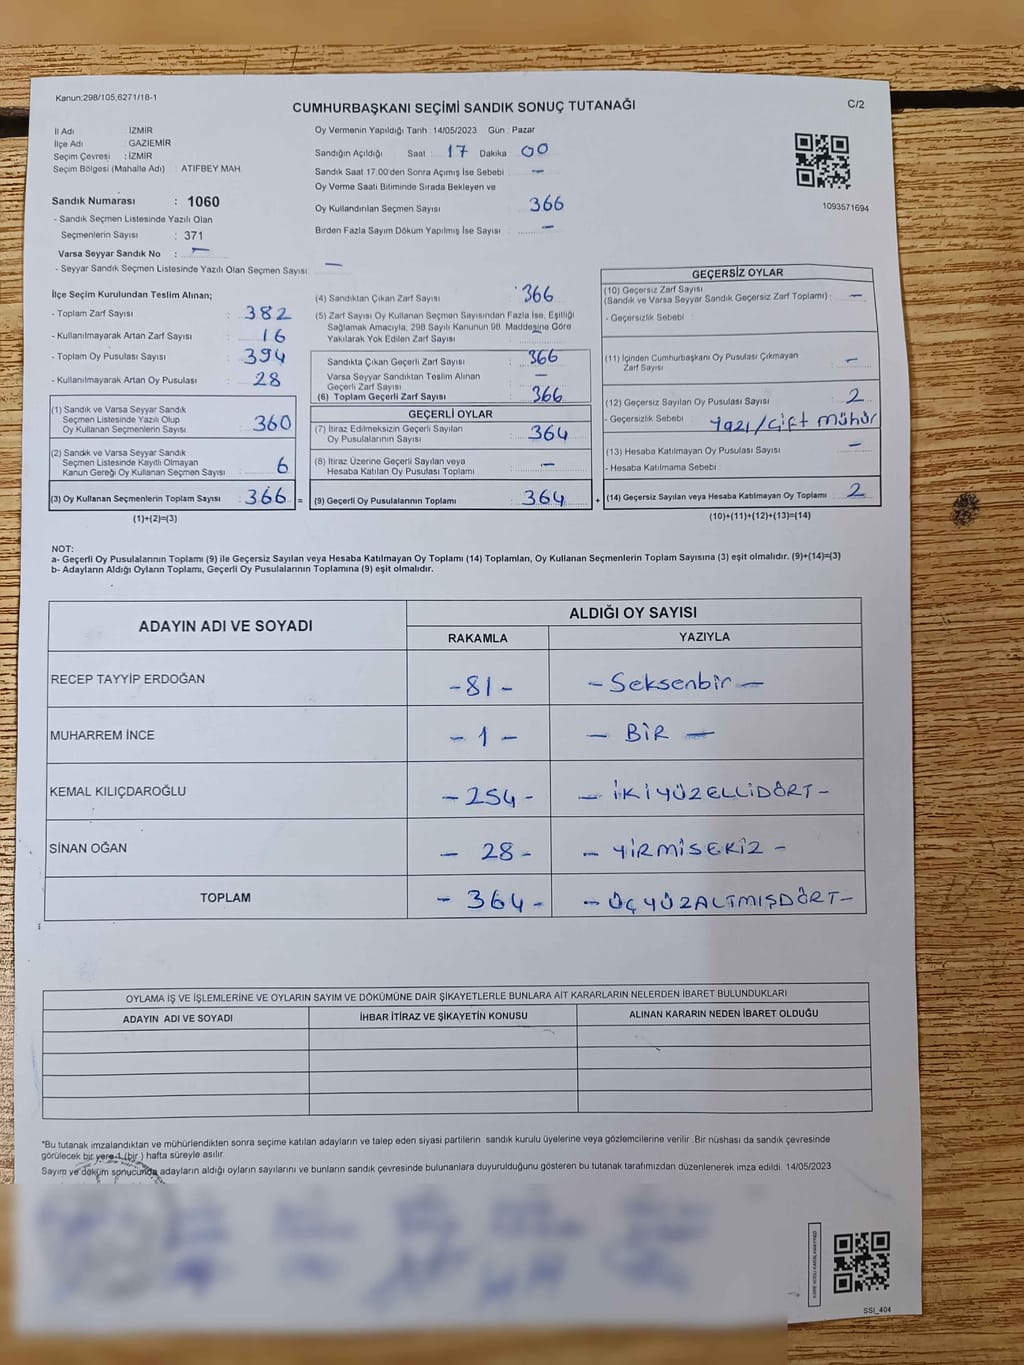 Kanun;298/105;6271/18-1
CUMHURBAŞKANI SEÇİMİ SANDIK SONUÇ TUTANAĞI
C/2
İl Adı : İZMİR
İlçe Adı : GAZİEMİR
Seçim Çevresi : İZMİR
Seçim Bölgesi (Mahalle Adı) : ATIFBEY MAH
Sandık Numarası : 1060
- Sandık Seçmen Listesinde Yazılı Olan
Seçmenlerin Sayısı : 371
Varsa Seyyar Sandık No : —
- Seyyar Sandık Seçmen Listesinde Yazılı Olan Seçmen Sayısı: —
Oy Vermenin Yapıldığı Tarih : 14/05/2023 Gün : Pazar
Sandığın Açıldığı Saat : 17 Dakika : 00
Sandık Saat 17.00'den Sonra Açımış İse Sebebi : —
Oy Verme Saati Bitiminde Sırada Bekleyen ve
Oy Kullandırılan Seçmen Sayısı : 366
Birden Fazla Sayım Döküm Yapılmış İse Sayısı : —
1093571694
İlçe Seçim Kurulundan Teslim Alınan;
- Toplam Zarf Sayısı : 382
- Kullanılmayarak Artan Zarf Sayısı : 16
- Toplam Oy Pusulası Sayısı : 394
- Kullanılmayarak Artan Oy Pusulası : 28
(1) Sandık ve Varsa Seyyar Sandık
Seçmen Listesinde Yazılı Olup
Oy Kullanan Seçmenlerin Sayısı : 360
(2) Sandık ve Varsa Seyyar Sandık
Seçmen Listesinde Kayıtlı Olmayan
Kanun Gereği Oy Kullanan Seçmen Sayısı : 6
(3) Oy Kullanan Seçmenlerin Toplam Sayısı : 366 =
(1)+(2)=(3)
(4) Sandıktan Çıkan Zarf Sayısı : 366
(5) Zarf Sayısı Oy Kullanan Seçmen Sayısından Fazla İse, Eşitliği
Sağlamak Amacıyla, 298 Sayılı Kanunun 98. Maddesine Göre
Yakılarak Yok Edilen Zarf Sayısı : —
Sandıkta Çıkan Geçerli Zarf Sayısı : 366
Varsa Seyyar Sandıktan Teslim Alınan
Geçerli Zarf Sayısı : —
(6) Toplam Geçerli Zarf Sayısı : 366
GEÇERLİ OYLAR
(7) İtiraz Edilmeksizin Geçerli Sayılan
Oy Pusulalarının Sayısı : 364
(8) İtiraz Üzerine Geçerli Sayılan veya
Hesaba Katılan Oy Pusulası Toplamı : —
(9) Geçerli Oy Pusulalarının Toplamı : 364 +
GEÇERSİZ OYLAR
(10) Geçersiz Zarf Sayısı
(Sandık ve Varsa Seyyar Sandık Geçersiz Zarf Toplamı) : —
- Geçersizlik Sebebi :
(11) İçinden Cumhurbaşkanı Oy Pusulası Çıkmayan
Zarf Sayısı : —
(12) Geçersiz Sayılan Oy Pusulası Sayısı : 2
- Geçersizlik Sebebi : Yazı/Çift mühür
(13) Hesaba Katılmayan Oy Pusulası Sayısı : —
- Hesaba Katılmama Sebebi :
(14) Geçersiz Sayılan veya Hesaba Katılmayan Oy Toplamı : 2
(10)+(11)+(12)+(13)=(14)
NOT:
a- Geçerli Oy Pusulalarının Toplamı (9) ile Geçersiz Sayılan veya Hesaba Katılmayan Oy Toplamı (14) Toplamları, Oy Kullanan Seçmenlerin Toplam Sayısına (3) eşit olmalıdır. (9)+(14)=(3)
b- Adayların Aldığı Oyların Toplamı, Geçerli Oy Pusulalarının Toplamına (9) eşit olmalıdır.
ADAYIN ADI VE SOYADI
ALDIĞI OY SAYISI
RAKAMLA YAZIYLA
RECEP TAYYİP ERDOĞAN -81- -Seksenbir-
MUHARREM İNCE -1- -BİR-
KEMAL KILIÇDAROĞLU -254- -İKİYÜZELLİDÖRT-
SİNAN OĞAN -28- -YİRMİSEKİZ-
TOPLAM -364- -ÜÇYÜZALTMIŞDÖRT-
OYLAMA İŞ VE İŞLEMLERİNE VE OYLARIN SAYIM VE DÖKÜMÜNE DAİR ŞİKAYETLERLE BUNLARA AİT KARARLARIN NELERDEN İBARET BULUNDUKLARI
ADAYIN ADI VE SOYADI İHBAR İTİRAZ VE ŞİKAYETİN KONUSU ALINAN KARARIN NEDEN İBARET OLDUĞU
*Bu tutanak imzalandıktan ve mühürlendikten sonra seçime katılan adayların ve talep eden siyasi partilerin sandık kurulu üyelerine veya gözlemcilerine verilir. Bir nüshası da sandık çevresinde
görülecek bir yere 1 (bir ) hafta süreyle asılır.
Sayım ve döküm sonucunda adayların aldığı oyların sayılarını ve bunların sandık çevresinde bulunanlara duyurulduğunu gösteren bu tutanak tarafımızdan düzenlenerek imza edildi. 14/05/2023
SSI_404